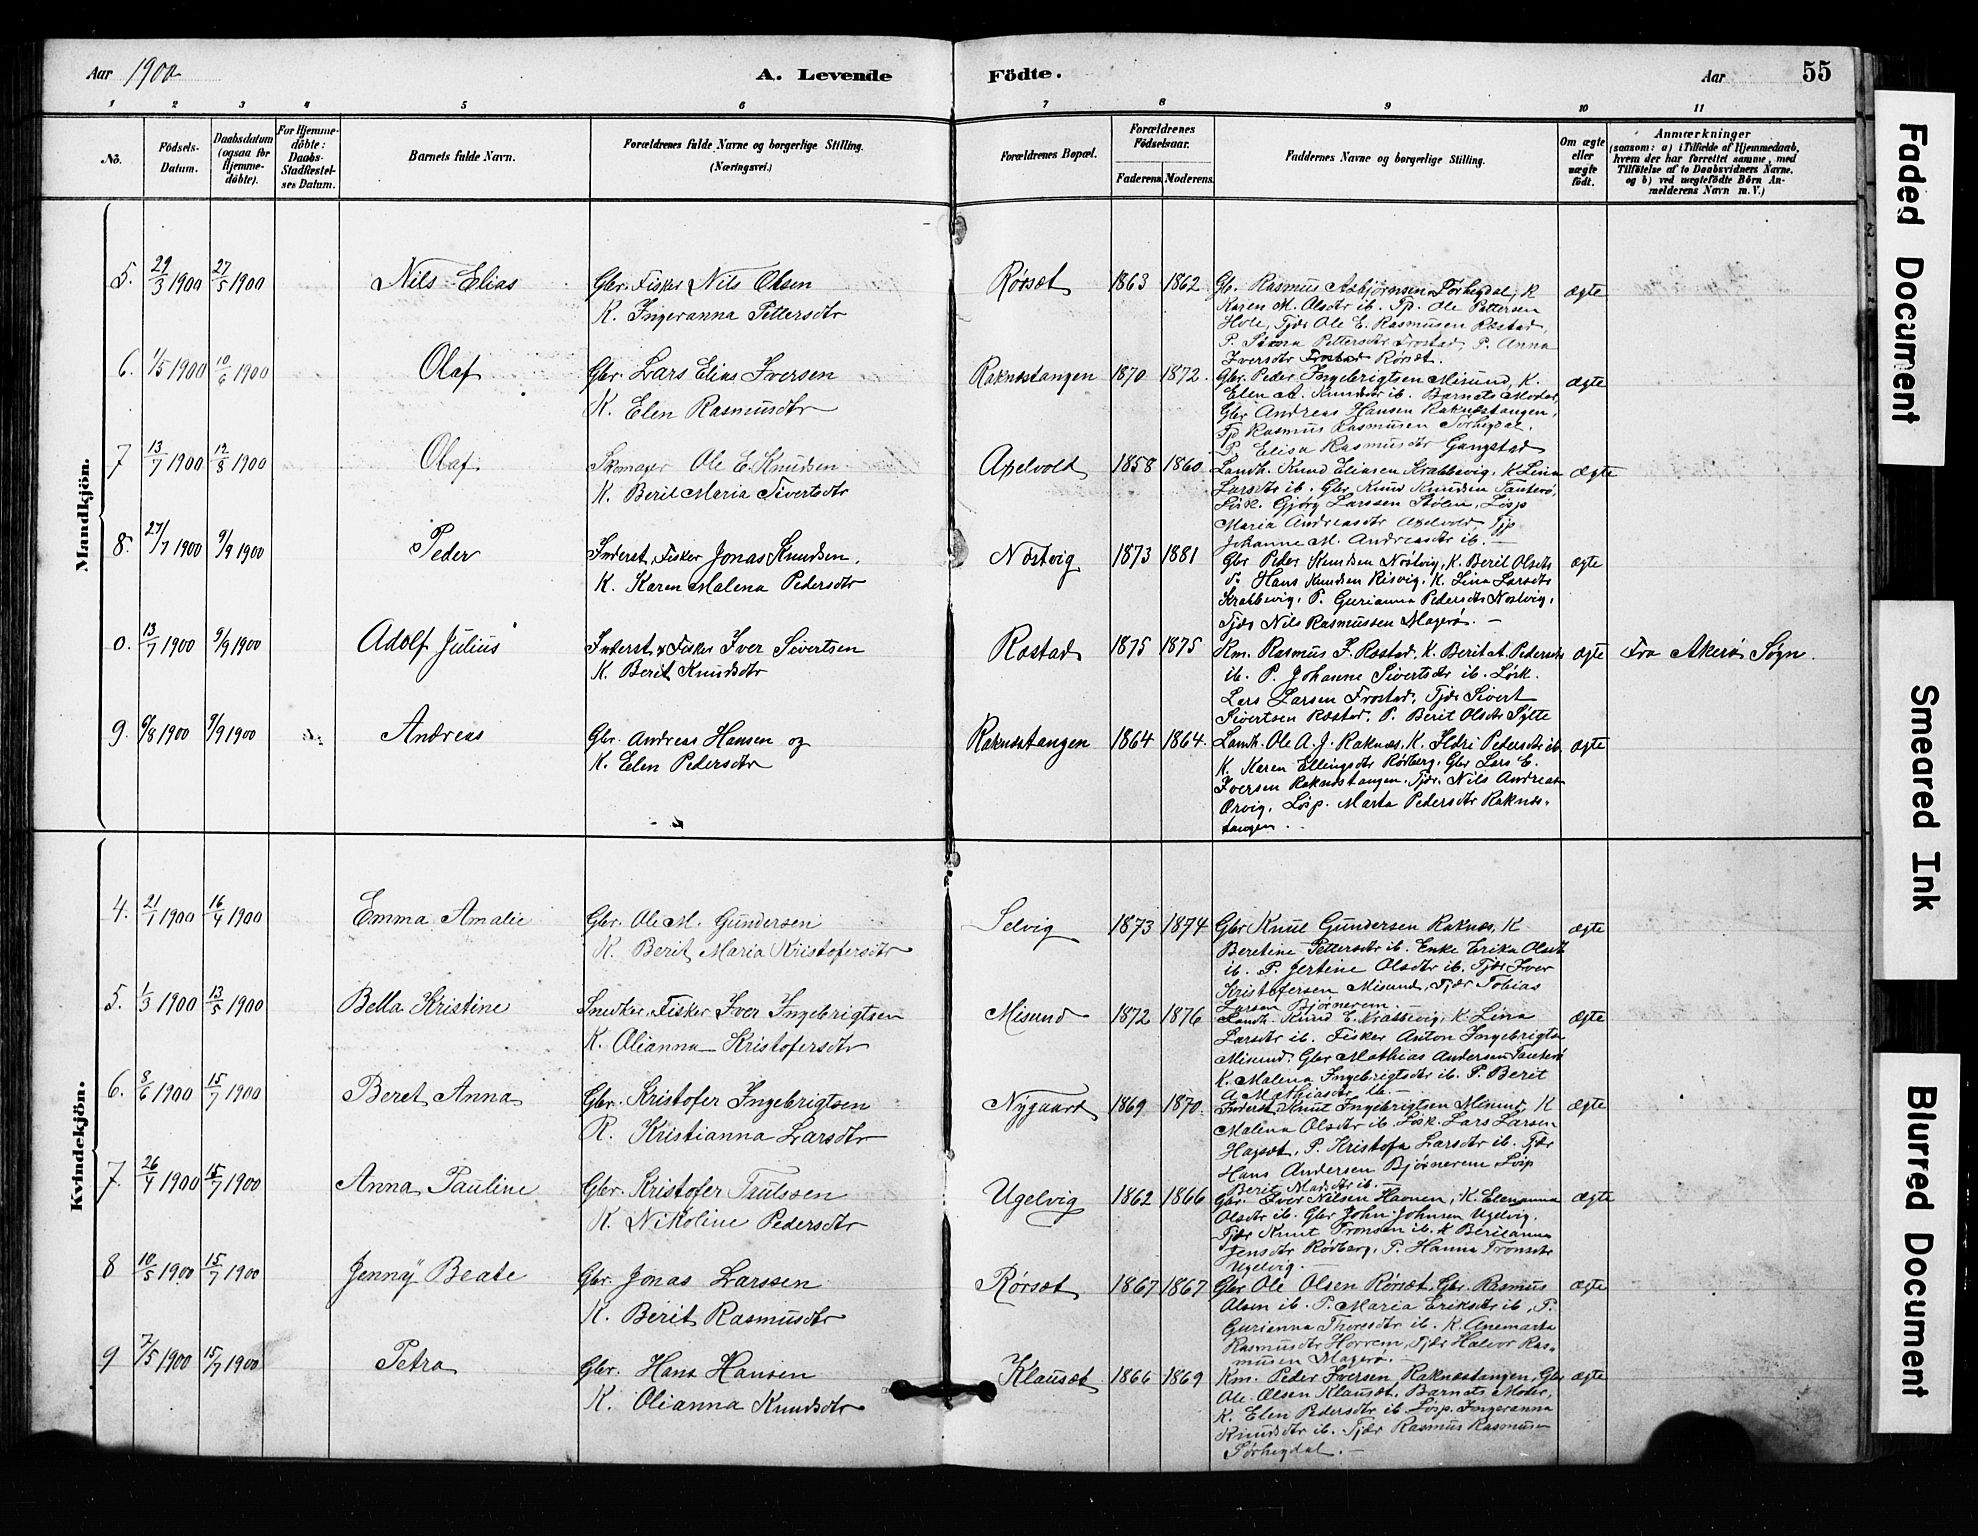 Aar 1900 A. Levende Födte. Aar 55
1 2 3 4 5 6 7 8 9 10 11
No. Födsels-Datum. Daabsdatum (ogsaa for Hjemmedöbte). For Hjemmedöbte: Daabs-Stadfæstelses Datum. Barnets fulde Navn. Forældrenes fulde Navne og borgerlige Stilling. (Næringsvei.) Forældrenes Bopæl. Forældrenes Födselsaar. Faderens Moderens. Faddernes Navne og borgerlige Stilling. Om ægte eller uægte födt. Anmærkninger (saasom: a) i Tilfælde af Hjemmedaab, hvem der har forrettet samme, med Tilföielse af to Daabsvidners Navne. og b) ved uægtefödte Börn Anmelderens Navn m. V.)
Mandkjön.
5. 29/3 1900 27/5 1900 Nils Elias Gbr. Fisker Nils Olsen Rørsæt 1863 1862 Gb. Rasmus Asbjørnsen Sørhegdal, K ægte
K. Ingeranna Pettersdtr Karen M. Olsdtr ib. Tp. Ole Pettersen
Hole, Tjdr Ole E. Rasmusen Rostad,
P. Pettersdtr Frostad, P. Anna
Iversdtr Frostad Rørsæt.
6. 1/5 1900 10/6 1900 Olaf Gbr. Lars Elias Iversen Raknæstangen 1870 1872. Gbr. Peder Ingebrigtsen Misund, K. ægte
K. Elen Rasmusdtr Elen A. Knudsdtr ib. Barnets Moder,
Gbr Andreas Hansen Raknæstangen,
Tp Rasmus Rasmusen Sørhegdal.
P. Elisa Rasmusdtr Gangstad
7 13/7 1900 12/8 1900 Olaf Skomager Ole E. Knudsen. Axelvold 1858 1860 Landh. Knud Eliasen Krabbevig, K Lina ægte
K. Berit Maria Sivertsdtr Larsdtr ib. Gbr Knud Knudsen Tauterø,
Løsk. Gjørg Larssen Stølen, Løsp
Maria Andreasdtr Axelvold, Tjp
Johanne M. Andreasdtr ib. —
8. 27/7 1900 9/9 1900 Peder Inderst, Fisker Jonas Knudsen. Nøstvig 1873 1881 Gbr Peder Knudsen Nøstvig, K. Berit Olsdtr ægte
K. Karen Malena Pedersdtr F. Hans Knudsen Risvig, K. Lina Larsdtr
Krabbevig, P. Gurianna Pedersdtr Nøstvig,
Tjdr Nils Rasmussen Magerø. —
0. 13/7 1900 9/9 1900 Adolf Julius Inderst & Fisker Iver Sivertsen Rostad 1875 1875 Km. Rasmus I. Rostad, K. Berit A. Pedersdtr ægte Fra Akerø Sogn.
K. Berit Knudsdtr ib. P. Johanne Sivertsdtr ib. Løsk.
Lars Larsen Frostad, Tjdr Sivert
Sivertsen Rostad, P. Berit Olsdtr Sylte
9. 6/8 1900 9/9 1900 Andreas Gbr. Andreas Hansen og Raknæstangen 1864 1864. Landh. Ole A. J. Raknæs, K. Ildri Pedersdtr ib. ægte
K. Elen Pedersdtr K. Karen Ellingsdtr Rødberg, Gbr Lars E.
Iversen Raknæstangen, Tjdr. Nils Andreas
Ørvig, Løsp. Marta Pedersdtr Raknæs-
tangen.
Kvindekjön.
4. 21/1 1900 16/4 1900 Emma Amalie Gbr. Ole M. Gundersen Selvig 1873 1874 Gbr Knut Gundersen Raknæs, K ægte
K. Berit Maria Kristofersdtr Beretine Pettersdtr ib. Enke Erika Olsdtr
ib. P. Jertine Olsdtr ib. Tjdr Iver
Kristofersen Misund, Tjdr Tobias
Larsen Bjørnerem.
5. 1/3 1900 13/5 1900 Bella Kristine Snedker, Fisker Iver Ingebrigtsen Misund 1872 1876 Landh. Knud E. Krabbevig, K. Lina ægte
K. Olianna Kristofersdtr Larsdtr ib. Fisker Anton Ingebrigts.
Misund, Gbr Mathias Andersen Tauterø
K. Malena Ingebrigtsdtr ib. P. Berit
A Mathiasdtr ib.
6. 3/6 1900 15/7 1900 Beret Anna Gbr. Kristofer Ingebrigtsen Nygaard 1869 1870. Inderst Knut Ingebrigtsen Misund, K ægte
K. Kristianna Larsdtr Malena Olsdtr ib. Løsk. Lars Larsen
Hagsæt, P. Kristofa Larsdtr ib. Tjdr
Hans Andersen Bjørnerem Løsp
Berit Madsdtr ib. —
7. 26/4 1900 15/7 1900 Anna Pauline Gbr. Kristofer Paulssen Ugelvig 1862 1866 Gbr. Iver Nilsen Haonen, K. Elenanna ægte
K. Nikoline Pedersdtr Olsdtr ib. Gbr John Johnsen Ugelvig.
Tjdr Knut Tronsen ib. K Beritanna
Jensdtr Rødberg, P. Hanna Tronsdtr
Ugelvig. —
8 10/5 1900 15/7 1900 Jenny Beate Gbr. Jonas Larssen Rørsæt 1867 1867 Gbr Ole Olsen Rørsæt, Gbr. Rasmus ægte
K. Berit Rasmusdtr Olsen ib. P. Maria Eriksdtr ib, P.
Gurianna Thoresdtr ib. K. Anemarta
Rasmusdtr Horrem, Tjdr Halvor Ras-
musen Magerø. —
9 7/5 1900 15/7 1900 Petra Gbr. Hans Hansen Klausæt 1866 1869 Km. Peder Iversen Raknæstangen, Gbr ægte
K. Olianna Knudsdtr Ole Olsen Klausæt, Barnets Moder,
K. Elen Pedersdtr ib Løsp. Ingeranna
Knudsdtr ib. Tjdr Rasmus Rasmusen
Sørhegdal. —
Faded Document
Smeared Ink
Blurred Document